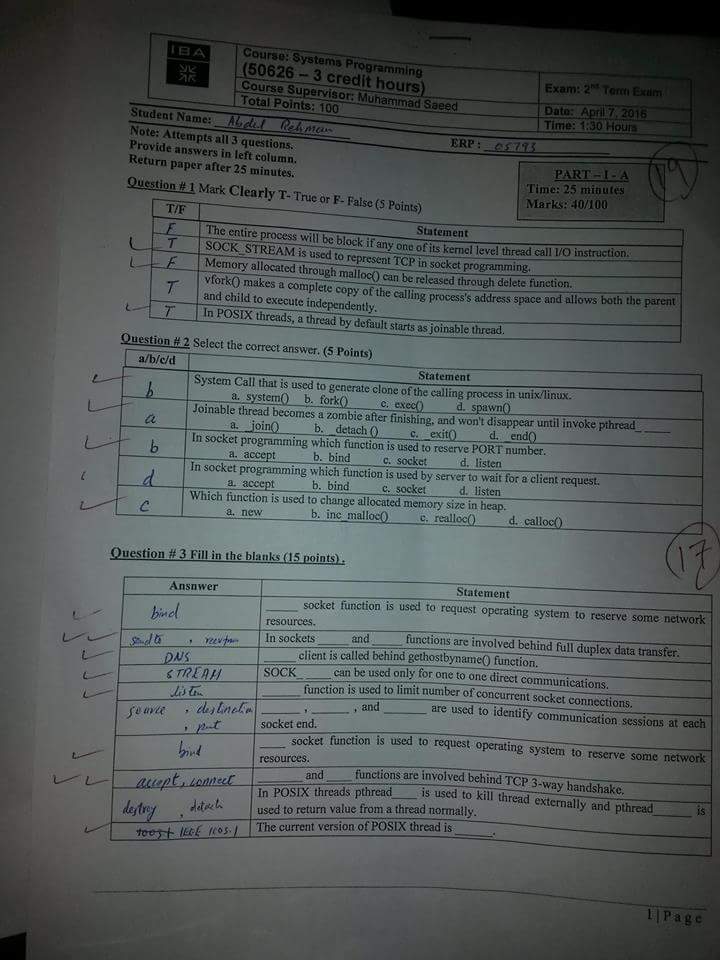 IBA
Course: Systems Programming
(50626 – 3 credit hours)
Course Supervisor: Muhammad Saeed
Total Points: 100
Exam: 2nd Term Exam
Date: April 7, 2016
Time: 1:30 Hours
Student Name: Abdul Rehman
ERP : 05793
Note: Attempts all 3 questions.
Provide answers in left column.
Return paper after 25 minutes.
PART – I - A
Time: 25 minutes
Marks: 40/100
19
Question # 1 Mark Clearly T- True or F- False (5 Points)
T/F Statement
F The entire process will be block if any one of its kernel level thread call I/O instruction.
T SOCK_STREAM is used to represent TCP in socket programming.
F Memory allocated through malloc() can be released through delete function.
T vfork() makes a complete copy of the calling process's address space and allows both the parent
and child to execute independently.
T In POSIX threads, a thread by default starts as joinable thread.
Question # 2 Select the correct answer. (5 Points)
a/b/c/d Statement
b System Call that is used to generate clone of the calling process in unix/linux.
a. system() b. fork() c. exec() d. spawn()
a Joinable thread becomes a zombie after finishing, and won't disappear until invoke pthread_ _____
a. _join() b. _detach () c. _exit() d. _end()
b In socket programming which function is used to reserve PORT number.
a. accept b. bind c. socket d. listen
d In socket programming which function is used by server to wait for a client request.
a. accept b. bind c. socket d. listen
c Which function is used to change allocated memory size in heap.
a. new b. inc_malloc() c. realloc() d. calloc()
17
Question # 3 Fill in the blanks (15 points) .
Answwer Statement
bind _____ socket function is used to request operating system to reserve some network
resources.
sendto , In sockets _____ and _____ functions are involved behind full duplex data transfer.
DNS _____ client is called behind gethostbyname() function.
STREAM SOCK_ _____ can be used only for one to one direct communications.
listen _____ function is used to limit number of concurrent socket connections.
source , destination , port _____ , _____ , and _____ are used to identify communication sessions at each
socket end.
bind _____ socket function is used to request operating system to reserve some network
resources.
accept, connect _____ and _____ functions are involved behind TCP 3-way handshake.
destroy , detach In POSIX threads pthread____ is used to kill thread externally and pthread______ is
used to return value from a thread normally.
IEEE The current version of POSIX thread is ______.
1 | Page